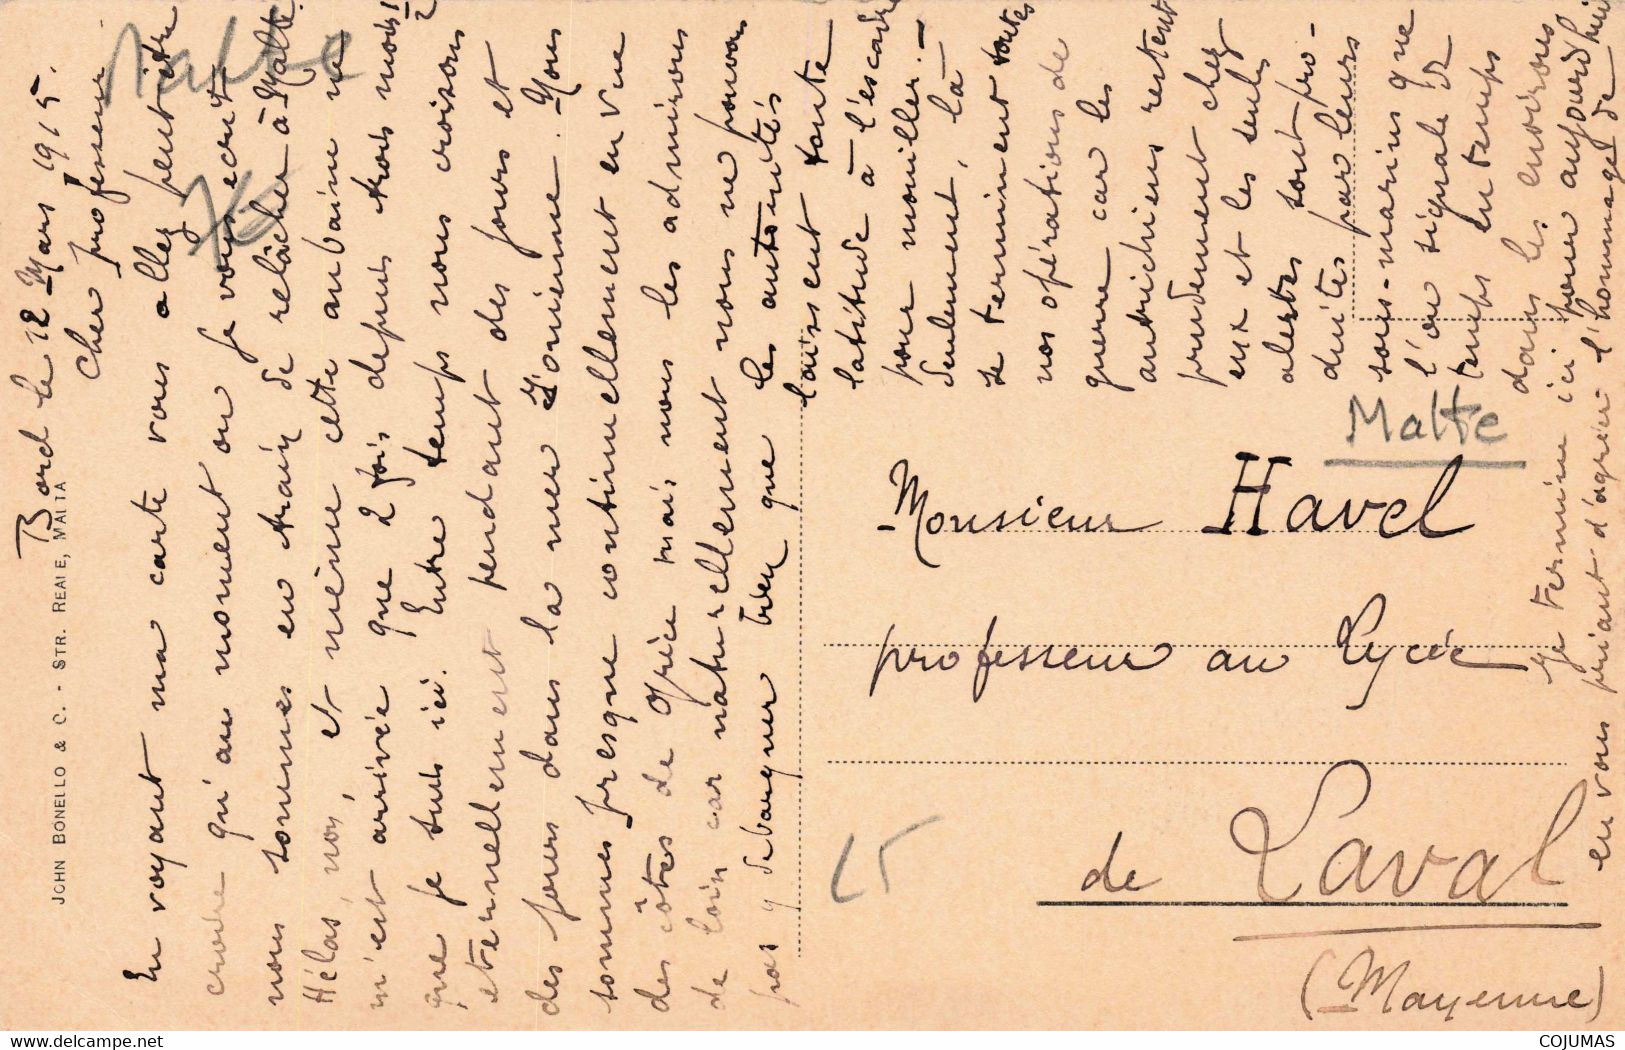 Bord le 12 Mars 1915.
Cher professeur
En voyant ma carte vous allez peut être
croire qu'au moment où je vous écrit
nous sommes en train de relâcher à Malte.
Hélas, non, et même cette aubaine ne
m'est arrivée que 2 fois depuis trois mois 1/2
que je suis ici. Entre temps nous croisons
éternellement pendant des jours et
des jours dans la mer Ionienne. Nous
sommes presque continuellement en vue
des côtes de Grèce mais nous les admirons
de loin car naturellement nous ne pouvons
pas y débarquer bien que les autorités
laissent toute
latitude à l'escadre
pour mouiller. -
Seulement, là
se terminent toutes
nos opérations de
guerre car les
autrichiens restent
prudemment chez
eux et les seules
alertes sont pro-
duites par leurs
sous-marins que
l'on signale de
temps en temps
dans les environs
Je termine ici pour aujourd'hui
en vous priant d'agréer l'hommage de
Malte
Malte
Monsieur Havel
professeur au Lycée
de Laval
(Mayenne)
15
JOHN BONELLO & C. - STR. REALE, MALTA
COJUMAS